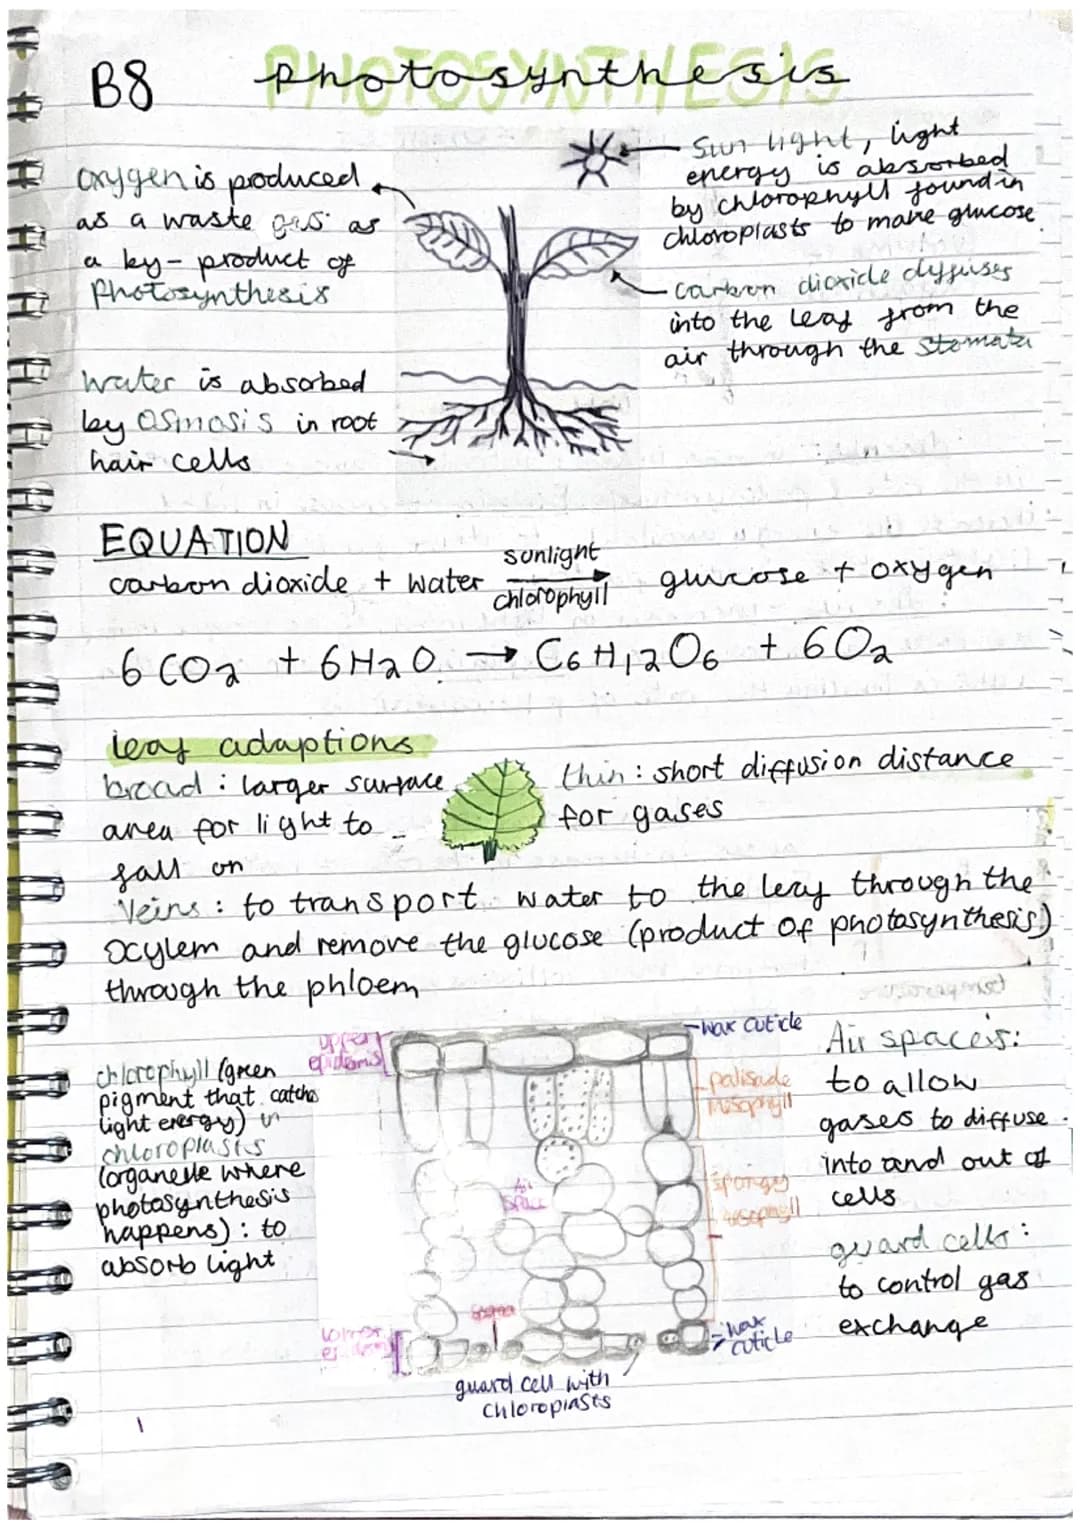 B8
PHOTOSYNTHESIS
photosynthesis
oxygen is produced
as a waste gas as
a by-product of
Photosynthesis
Sun light, light
energy is absorbed
by chlorophyll found in
chloroplasts to make glucose
carbon dioxide diffuses
into the leaf from the
air through the stomata
water is absorbed
by osmosis in root
hair cells
EQUATION
carbon dioxide + water sunlight → chlorophyll glucose + oxygen
6 CO2 + 6H2O → C6H12O6 + 6O2
leaf adaptions
broad : larger surface
area for light to
fall on
thin : short diffusion distance
for gases
Veins : to transport water to the leaf through the
xylem and remove the glucose (product of photosynthesis)
through the phloem
chlorophyll (green
pigment that catchs
light energy) in
chloroplasts
(organelle where
photosynthesis
happens) : to
absorb light
upper
epidermis
wax cuticle
palisade
mesophyll
Air
space
spongy
mesophyll
stoma
lower
epidermis
wax
cuticle
guard cell with
chloroplasts
Air spaces:
to allow
gases to diffuse
into and out of
cells
guard cells:
to control gas
exchange
1